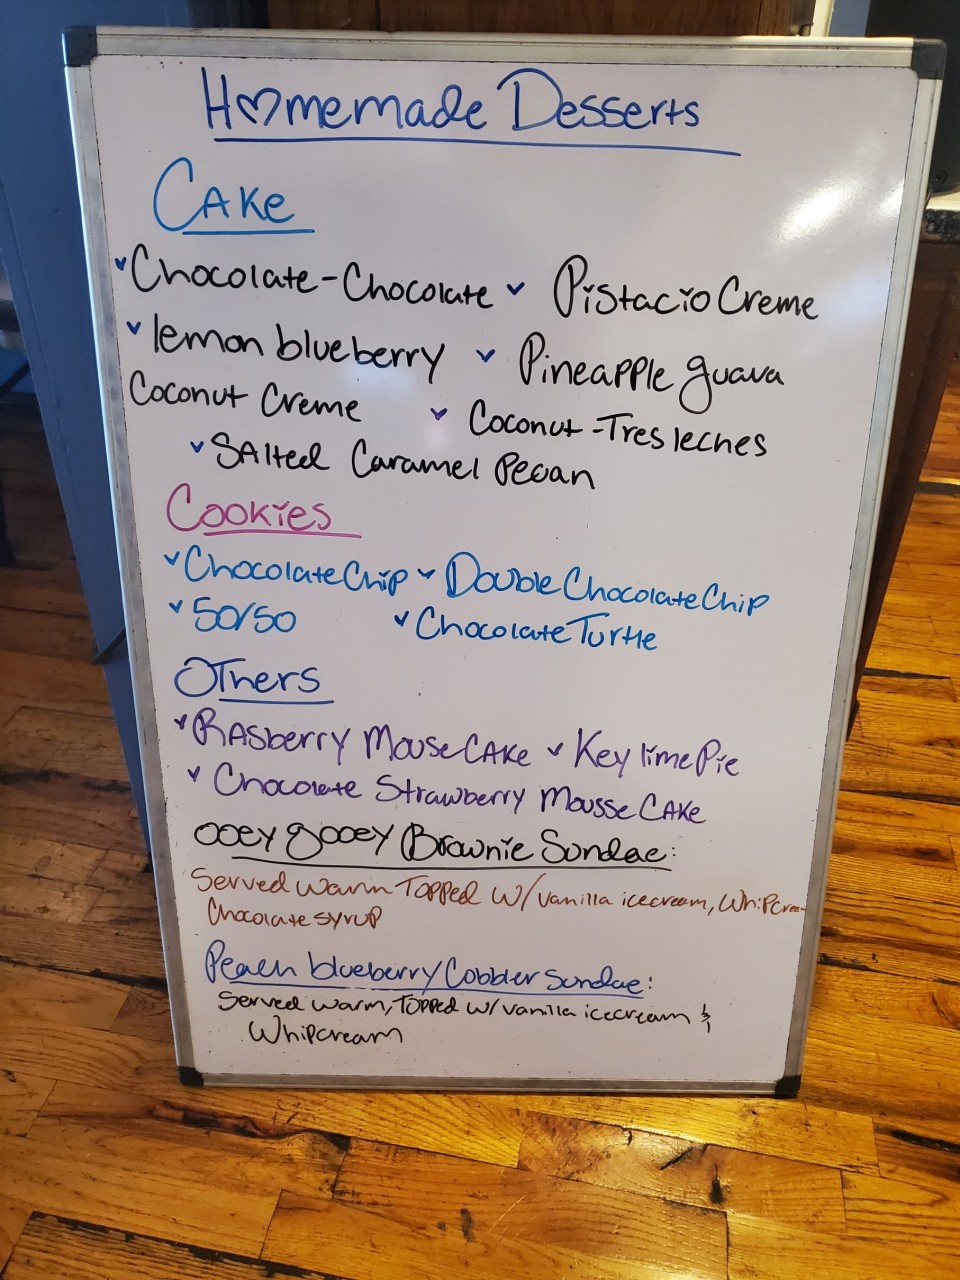 Homemade Desserts
Cake
Chocolate-Chocolate Pistacio Creme
lemon blueberry Pineapple guava
Coconut Creme Coconut-Tres leches
Salted Caramel Pecan
Cookies
Chocolate Chip Double Chocolate Chip
50/50 Chocolate Turtle
Others
Rasberry Mouse Cake Key lime Pie
Chocolate Strawberry Mousse Cake
ooey gooey Brownie Sundae:
Served warm Topped w/ vanilla icecream, Whipcream
Chocolate syrup
Peach blueberry Cobbler Sundae:
Served warm, Topped w/ vanilla icecream &
Whipcream